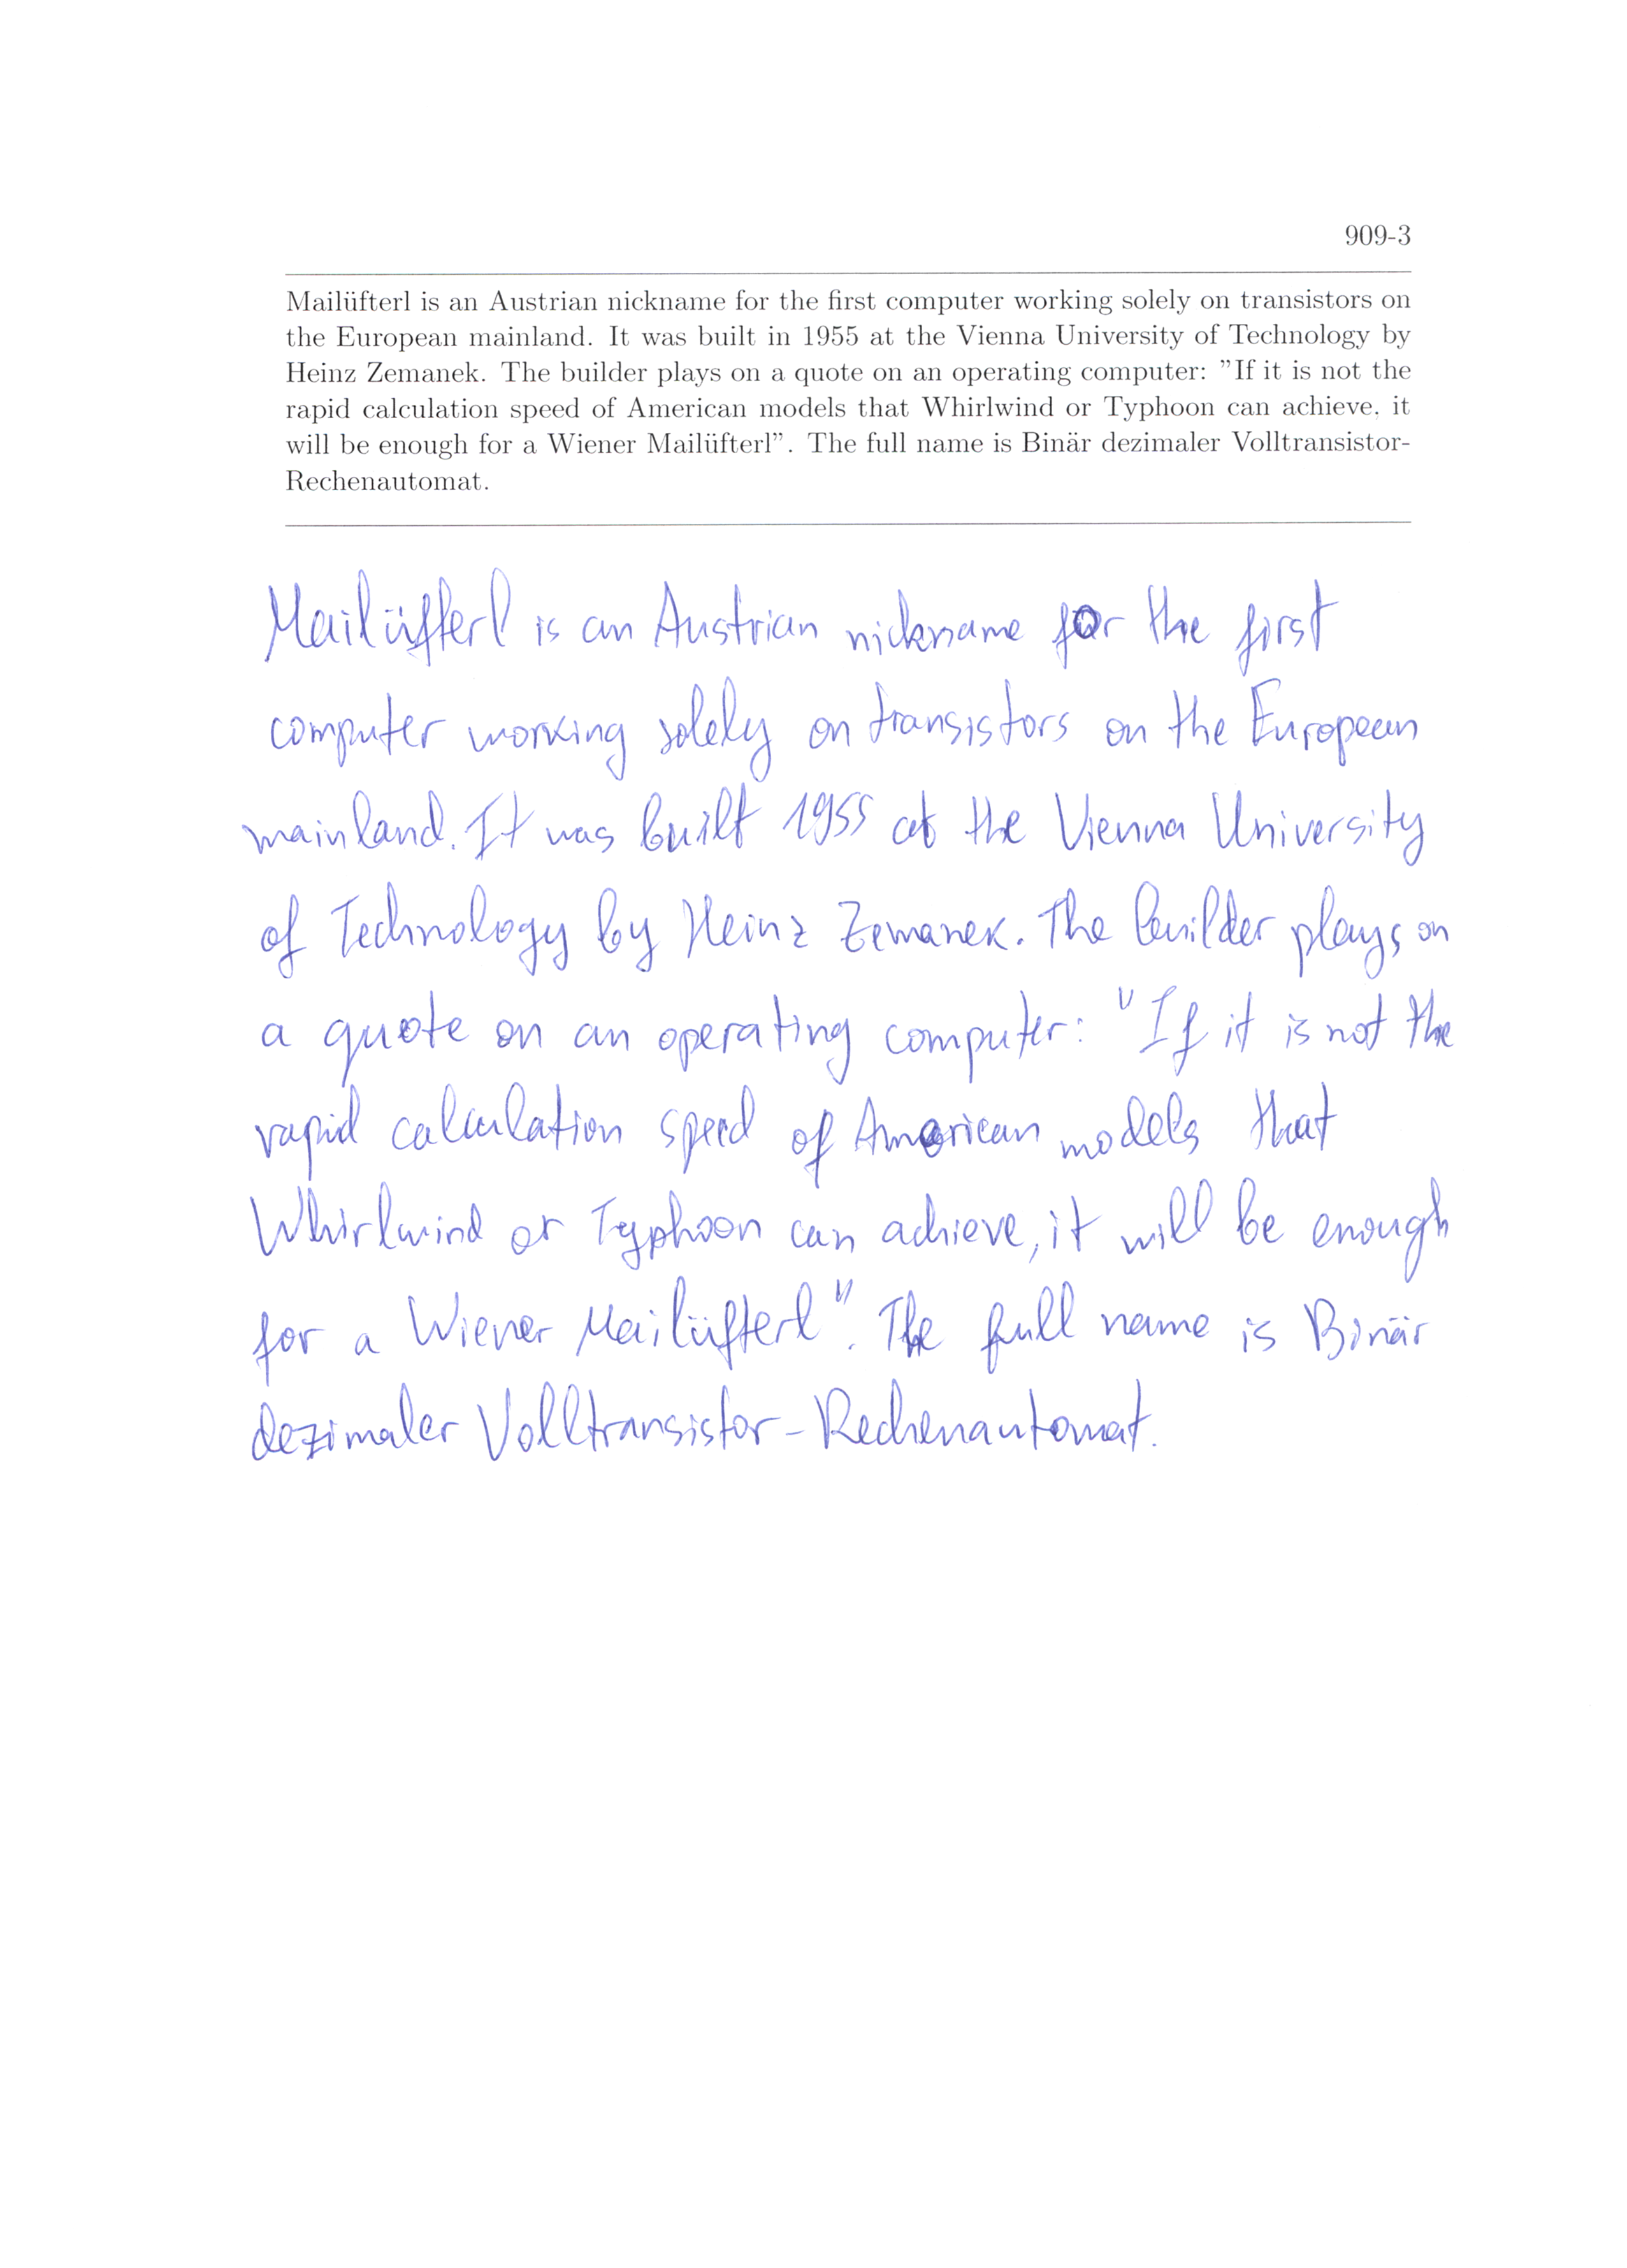 909-3
Mailüfterl is an Austrian nickname for the first computer working solely on transistors on
the European mainland. It was built in 1955 at the Vienna University of Technology by
Heinz Zemanek. The builder plays on a quote on an operating computer: ”If it is not the
rapid calculation speed of American models that Whirlwind or Typhoon can achieve, it
will be enough for a Wiener Mailüfterl”. The full name is Binär dezimaler Volltransistor-
Rechenautomat.
Mailüfterl is an Austrian nickname for the first
computer working solely on transistors on the European
mainland. It was built 1955 at the Vienna University
of Technology by Heinz Zemanek. The builder plays on
a quote on an operating computer: "If it is not the
rapid calculation speed of American models that
Whirlwind or Typhoon can achieve, it will be enough
for a Wiener Mailüfterl". The full name is Binär
dezimaler Volltransistor-Rechenautomat.